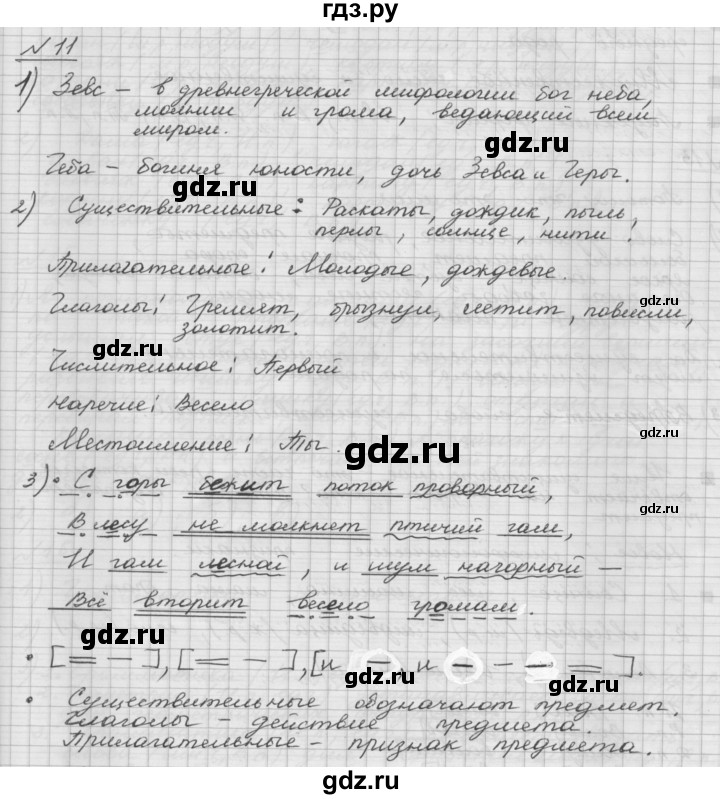 гдз.ру
№ 11
1) Зевс – в древнегреческой мифологии бог неба,
молнии и грома, ведающий всем
миром.
gdz.ru
Геба – богиня юности, дочь Зевса и Геры.
gdz.ru
2) Существительные: Раскаты, дождик, пыль,
перлы, солнце, нити.
Прилагательные: Молодые, дождевые.
gdz.ru
Глаголы: Гремят, брызнул, летит, повисли,
золотит.
gdz.ru
gdz.ru
Числительное: Первый
Наречие: Весело
Местоимение: Ты.
gdz.ru
gdz.ru
3) • С горы бежит поток проворный,
В лесу не молкнет птичий гам,
И гам лесной, и шум нагорный –
gdz.ru
Всё вторит весело громам.
gdz.ru
• [= –], [= –], [и –, и – – – =].
gdz.ru
• Существительные обозначают предмет.
Глаголы – действие предмета.
Прилагательные – признак предмета.
gdz.ru
гдз.ру